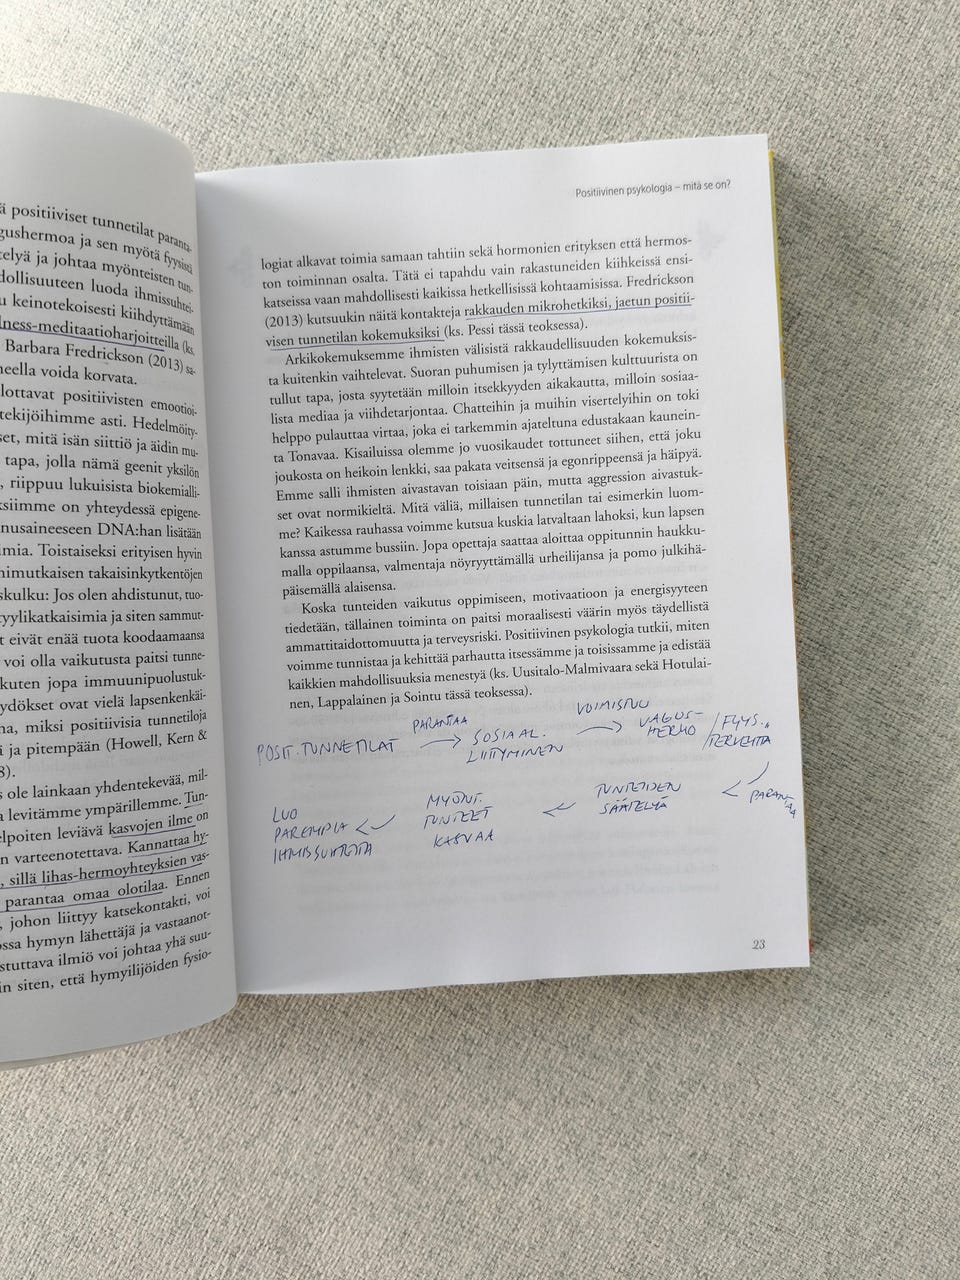 ä positiiviset tunnetilat paranta-
gushermoa ja sen myötä fyysistä
telyä ja johtaa myönteisten tun-
dollisuuteen luoda ihmissuhtei-
u keinotekoisesti kiihdyttämään
lness-meditaatioharjoitteilla (ks.
Barbara Fredrickson (2013) sa-
neella voida korvata.
lottavat positiivisten emootioi-
tekijöihimme asti. Hedelmöity-
set, mitä isän siittiö ja äidin mu-
tapa, jolla nämä geenit yksilön
, riippuu lukuisista biokemialli-
ksiimme on yhteydessä epigene-
nusaineeseen DNA:han lisätään
imia. Toistaiseksi erityisen hyvin
nimutkaisen takaisinkytkentöjen
skulku: Jos olen ahdistunut, tuo-
tyylikatkaisimia ja siten sammut-
t eivät enää tuota koodaamaansa
voi olla vaikutusta paitsi tunne-
kuten jopa immuunipuolustuk-
ydökset ovat vielä lapsenkenkäi-
na, miksi positiivisia tunnetiloja
ä ja pitempään (Howell, Kern &
8).
s ole lainkaan yhdentekevää, mil-
a levitämme ympärillemme. Tun-
elpoiten leviävä kasvojen ilme on
n varteenotettava. Kannattaa hy-
, sillä lihas-hermoyhteyksien vas-
parantaa omaa olotilaa. Ennen
, johon liittyy katsekontakti, voi
ossa hymyn lähettäjä ja vastaanot-
stuttava ilmiö voi johtaa yhä suu-
in siten, että hymyilijöiden fysio-
Positiivinen psykologia – mitä se on?
logiat alkavat toimia samaan tahtiin sekä hormonien erityksen että hermos-
ton toiminnan osalta. Tätä ei tapahdu vain rakastuneiden kiihkeissä ensi-
katseissa vaan mahdollisesti kaikissa hetkellisissä kohtaamisissa. Fredrickson
(2013) kutsuukin näitä kontakteja rakkauden mikrohetkiksi, jaetun positii-
visen tunnetilan kokemuksiksi (ks. Pessi tässä teoksessa).
Arkikokemuksemme ihmisten välisistä rakkaudellisuuden kokemuksis-
ta kuitenkin vaihtelevat. Suoran puhumisen ja tylyttämisen kulttuurista on
tullut tapa, josta syytetään milloin itsekkyyden aikakautta, milloin sosiaa-
lista mediaa ja viihdetarjontaa. Chatteihin ja muihin visertelyihin on toki
helppo pulauttaa virtaa, joka ei tarkemmin ajateltuna edustakaan kaunein-
ta Tonavaa. Kisailuissa olemme jo vuosikaudet tottuneet siihen, että joku
joukosta on heikoin lenkki, saa pakata veitsensä ja egonrippeensä ja häipyä.
Emme salli ihmisten aivastavan toisiaan päin, mutta aggression aivastuk-
set ovat normikieltä. Mitä väliä, millaisen tunnetilan tai esimerkin luom-
me? Kaikessa rauhassa voimme kutsua kuskia latvaltaan lahoksi, kun lapsen
kanssa astumme bussiin. Jopa opettaja saattaa aloittaa oppitunnin haukku-
malla oppilaansa, valmentaja nöyryyttämällä urheilijansa ja pomo julkihä-
päisemällä alaisensa.
Koska tunteiden vaikutus oppimiseen, motivaatioon ja energisyyteen
tiedetään, tällainen toiminta on paitsi moraalisesti väärin myös täydellistä
ammattitaidottomuutta ja terveysriski. Positiivinen psykologia tutkii, miten
voimme tunnistaa ja kehittää parhautta itsessämme ja toisissamme ja edistää
kaikkien mahdollisuuksia menestyä (ks. Uusitalo-Malmivaara sekä Hotulai-
nen, Lappalainen ja Sointu tässä teoksessa).
POSIT. TUNNETILAT → PARANTAA SOSIAAL. LIITTYMINEN → VOIMISTUU VAGUS-HERMO / FYYS. TERVEYTTÄ
LUO PAREMPIA IHMISSUHTEITA ← MYÖNT. TUNTEET KASVAA ← TUNTEIDEN SÄÄTELYÄ ← PARANTAA
23